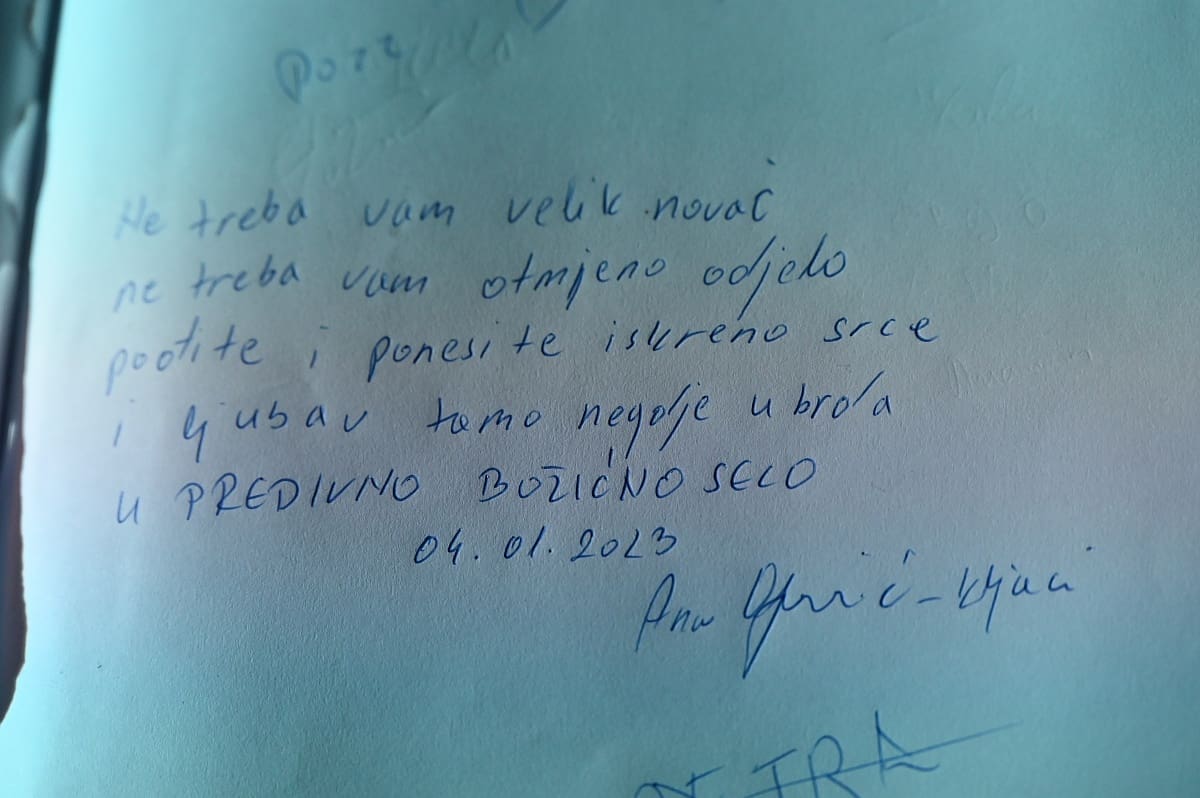 Ne treba vam velik novac
ne treba vam otmjeno odjelo
pođite i ponesite iskreno srce
i ljubav tamo negdje u brda
u PREDIVNO BOŽIĆNO SELO
04.01.2023
Ana